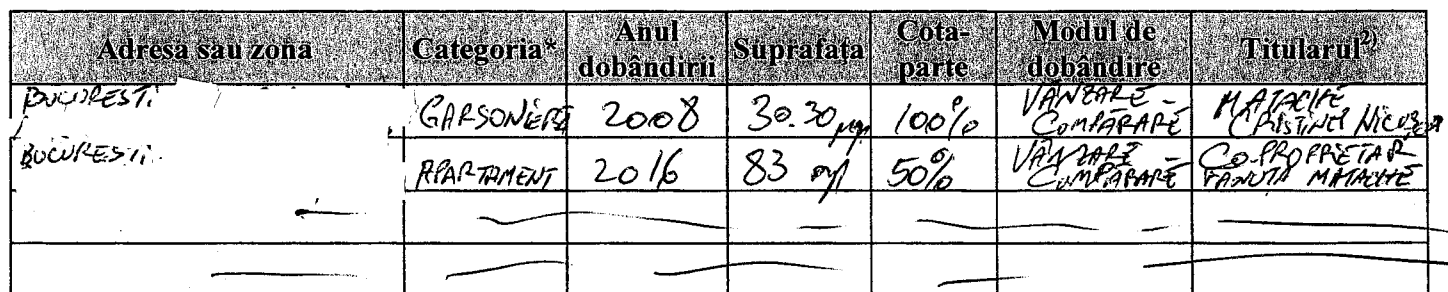 Adresa sau zona Categoria* Anul dobândirii Suprafaţa Cota-parte Modul de dobândire Titularul²⁾
BUCUREȘTI GARSONIERĂ 2008 30.30 mp 100% VÂNZARE - COMPARARE MATACHE CRISTINEL
BUCUREȘTI APARTAMENT 2016 83 mp 50% VÂNZARE - COMPARARE CO-PROPRIETAR TANUTA MATACHE